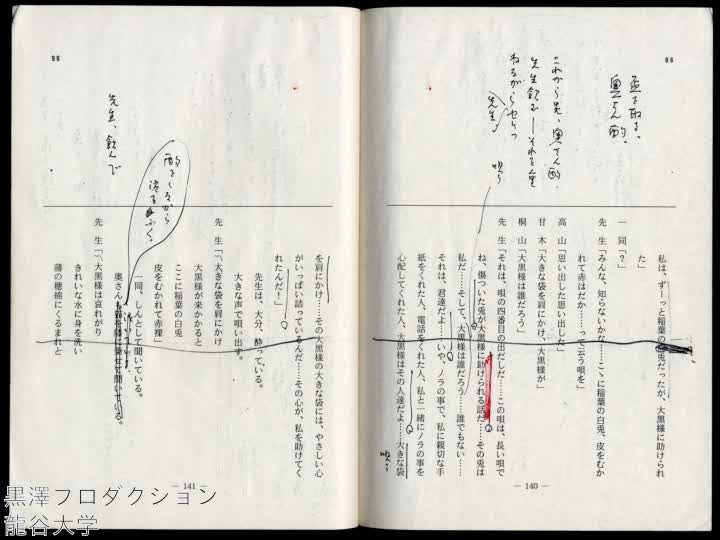 96
盃を取る、
奥さん酌。
これから先、奥さん酌、
先生飲む──それを
ねながらセリフ
先生、
唄う
私は、ずーっと稲葉の兎だったが、大黒様に助けられ
た」
一同「？」
先生「みんな、知らないかな……こゝに稲葉の白兎、皮をむか
れて赤はだか……って云う唄を」
高山「思い出した思い出した」
甘木「大きな袋を肩にかけ、大黒様が」
桐山「大黒様は誰だろう」
先生「それは、唄の四番目の出だしだ……この唄は、長い唄で
ね、傷ついた兎が大黒様に助けられる話だ……その兎は
私だ……そして、大黒様は誰だろう……誰でもない……
それは、君達だよ……いや、ノラの事で、私に親切な手
紙をくれた人、電話をくれた人、私と一緒にノラの事を
心配してくれた人、大黒様はその人達だよ……大きな袋
唄う
― 140 ―
96
先生、飲んで
酌をしながら
を肩にかけ……その大黒様の大きな袋には、やさしい心
がいっぱい詰っているんだ……その心が、私を助けてく
れたんだ！」
先生は、大分、酔っている。
大きな声で唄い出す。
先生「〽大きな袋を肩にかけ
大黒様が来かかると
ここに稲葉の白兎
皮をむかれて赤裸」
一同、しんとして聞いている。
奥さんも猫を膝に乗せて聞いている。
先生「〽大黒様は哀れがり
きれいな水に身を洗い
蒲の穂綿にくるまれと
― 141 ―
黒澤プロダクション
龍谷大学